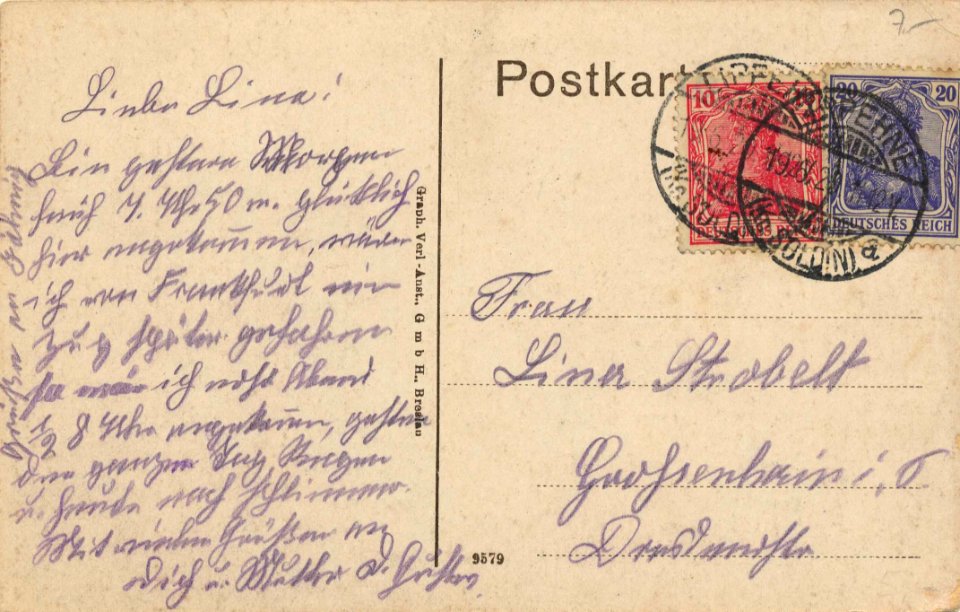 7.–
Postkart
10
20
20
DEUTSCHES REICH
DEUTSCHES REICH
LIPPEHNE
(SOLDIN)
a
Liebe Lina!
Bin gestern Morgen
früh 7 Uhr 50 m. glücklich
hier angekommen, wäre
ich von Frankfurt ein
Zug später gefahren
so wär ich erst Abend
½ 8 Uhr angekommen, gestern
den ganzen Tag Regen
u. heute noch schlimmer.
Mit vielen Grüßen an
dich u. Mutter d. Gustav.
Graph. Verl.-Anst., G m b H., Breslau
9579
Frau
Lina Strobelt
Großenhain i. S